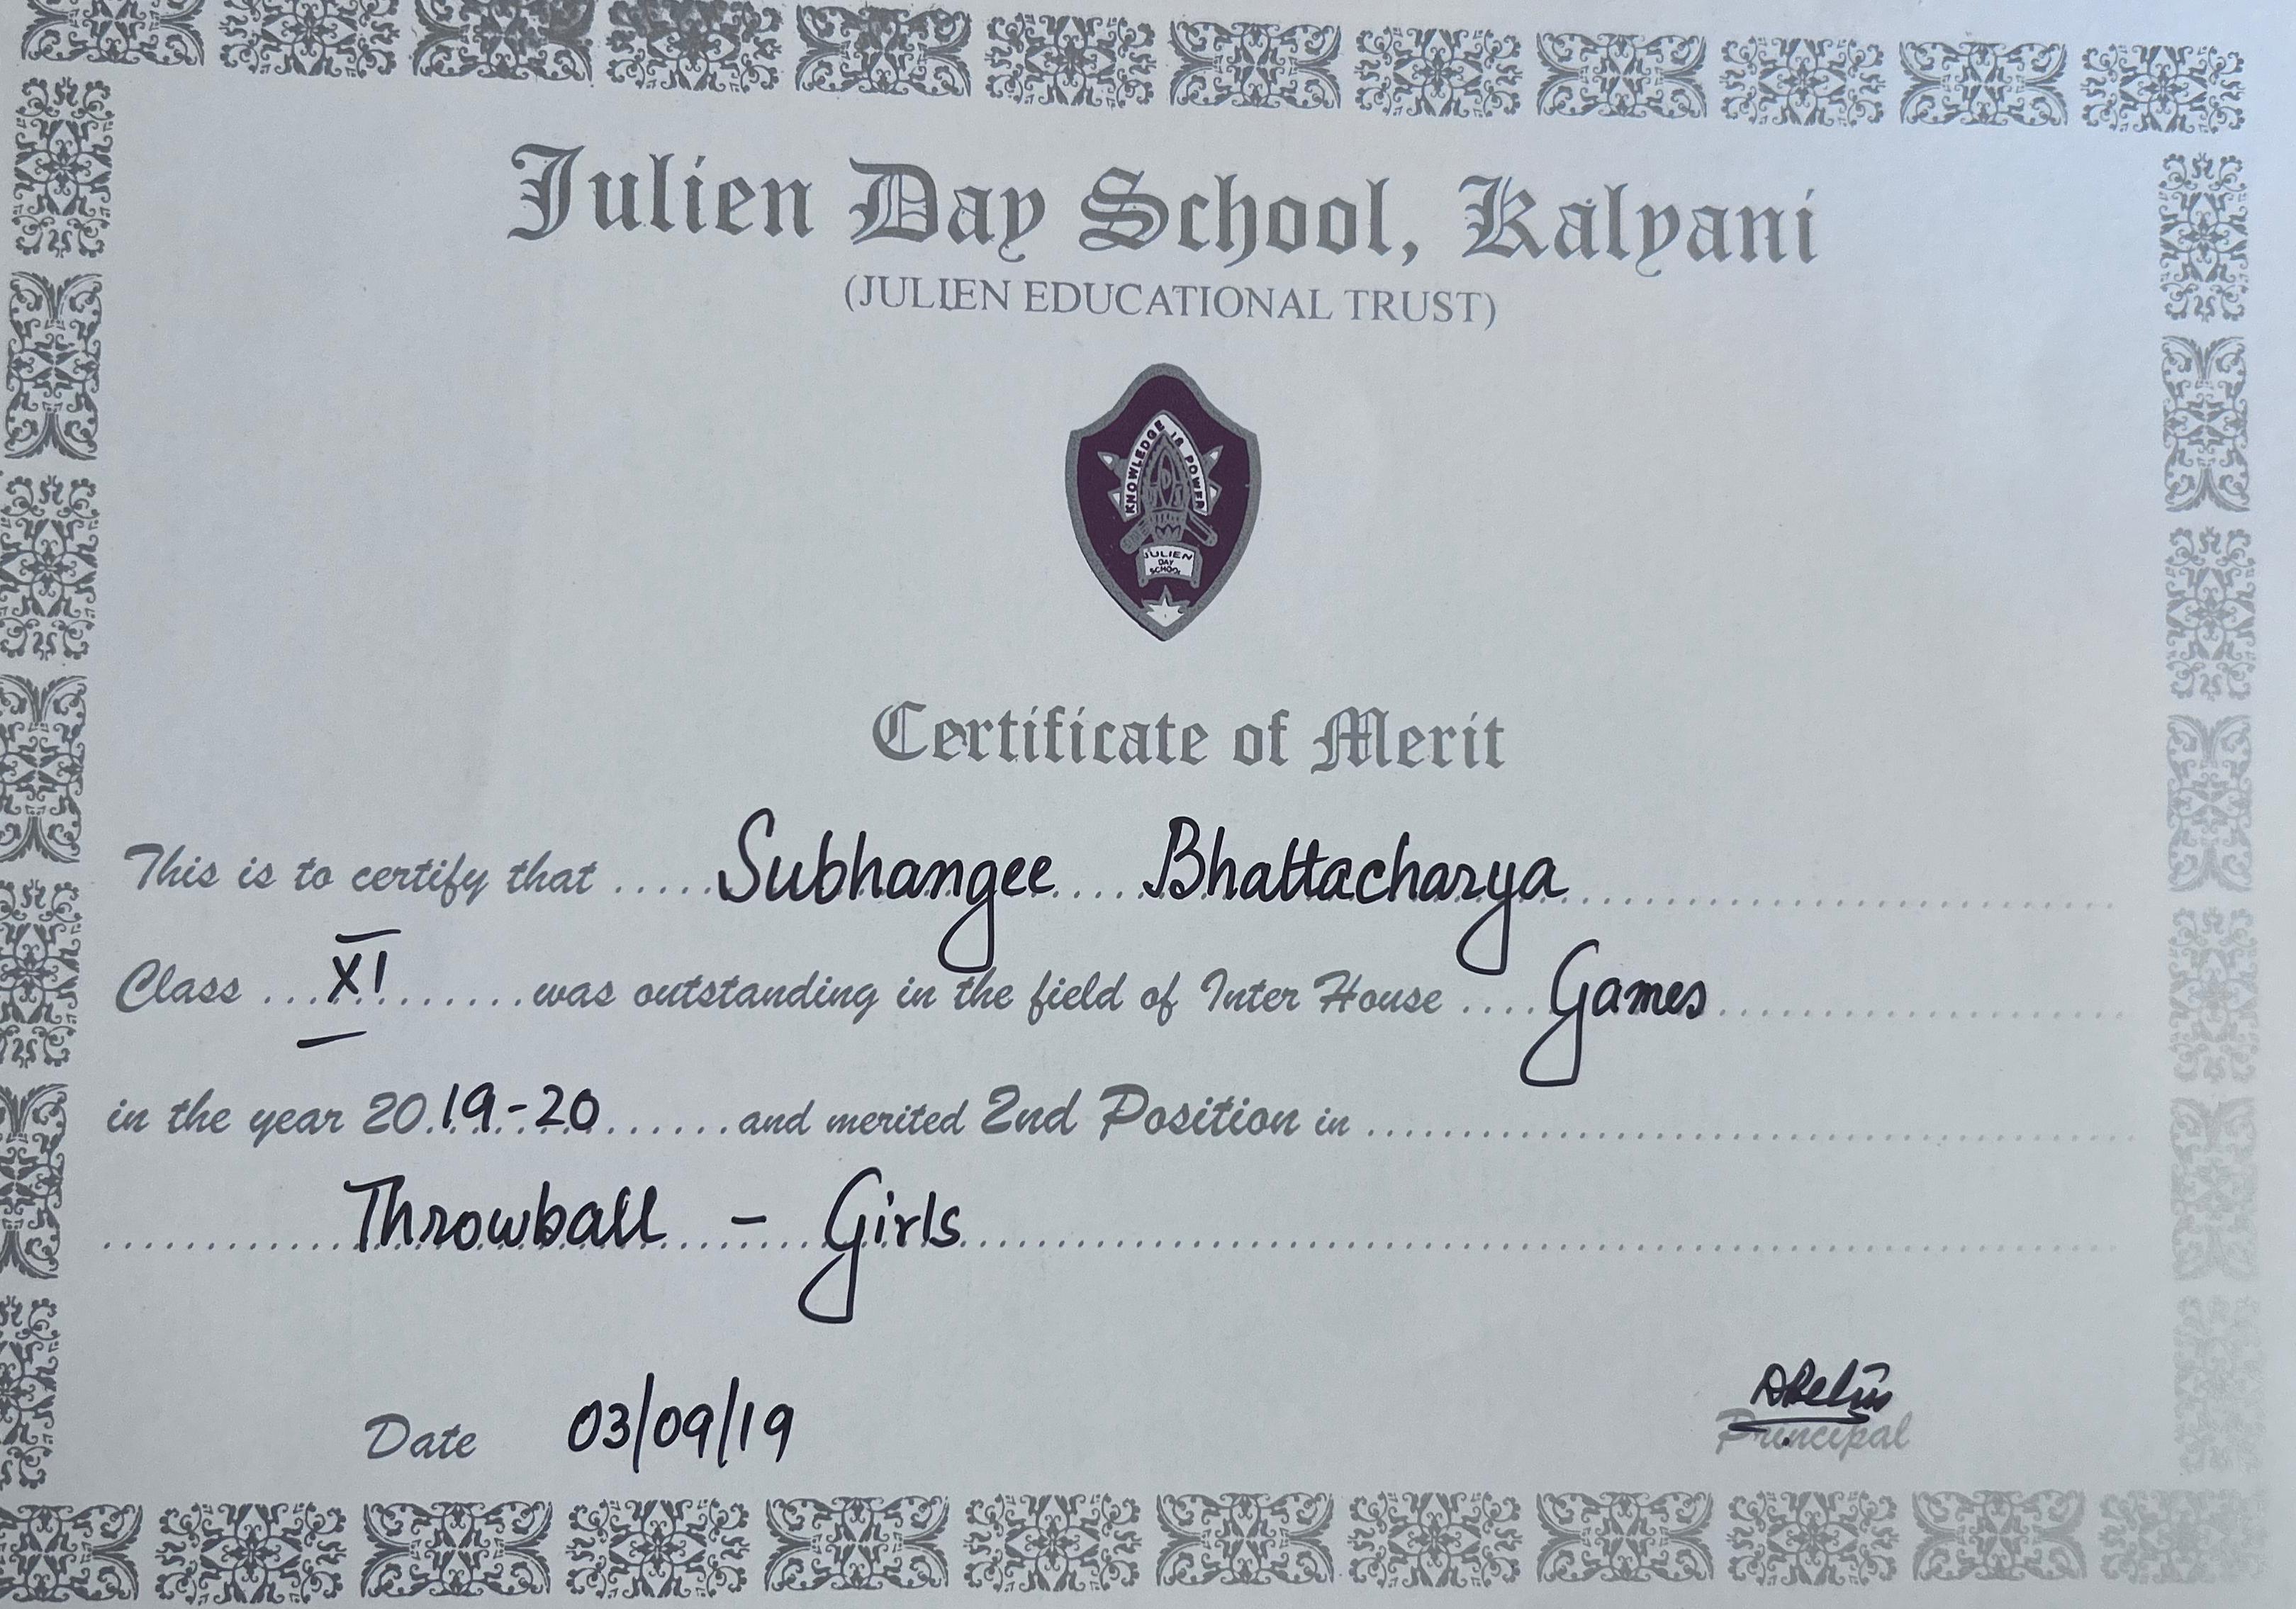 Julien Day School, Kalyani
(JULIEN EDUCATIONAL TRUST)
KNOWLEDGE IS POWER
JDS
JULIEN
DAY
SCHOOL
Certificate of Merit
This is to certify that ..... Subhangee .... Bhattacharya ..........
Class ... XI .......... was outstanding in the field of Inter House .... Games ..........
in the year 2019-20 ....... and merited 2nd Position in ..........
.......... Throwball - Girls ..........
Date 03/09/19
Principal